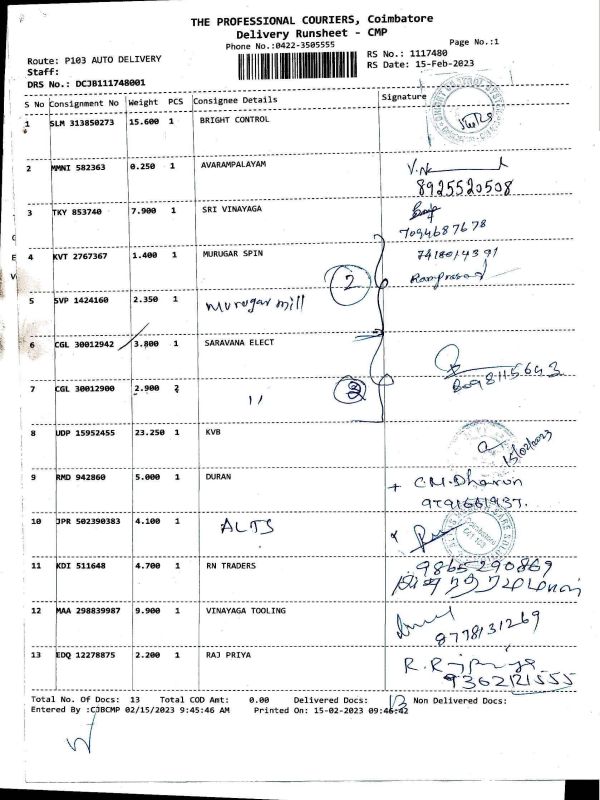 THE PROFESSIONAL COURIERS, Coimbatore
Delivery Runsheet - CMP
Phone No.:0422-3505555
Page No.:1
Route: P103 AUTO DELIVERY
RS No.: 1117480
Staff:
RS Date: 15-Feb-2023
DRS No.: DCJB111748001
S No Consignment No Weight PCS Consignee Details Signature
1 SLM 313850273 15.600 1 BRIGHT CONTROL
2 MMNI 582363 0.250 1 AVARAMPALAYAM
8925520508
3 TKY 853740 7.900 1 SRI VINAYAGA
7094687678
4 KVT 2767367 1.400 1 MURUGAR SPIN 7418014391
2 Ramprasad
5 SVP 1424160 2.350 1 Murugar mill
6 CGL 30012942 3.800 1 SARAVANA ELECT
7 CGL 30012900 2.900 2 11
8 UDP 15952455 23.250 1 KVB
15/02/2023
9 RMD 942860 5.000 1 DURAN + C.M. Dharun
9791661937.
10 JPR 502390383 4.100 1 ALTS
11 KDI 511648 4.700 1 RN TRADERS 9865290869
12 MAA 298839987 9.900 1 VINAYAGA TOOLING
8778131269
13 EDQ 12278875 2.200 1 RAJ PRIYA R. Rajpriya
9362121555
Total No. Of Docs: 13 Total COD Amt: 0.00 Delivered Docs: 13 Non Delivered Docs:
Entered By :CJBCMP 02/15/2023 9:45:46 AM Printed On: 15-02-2023 09:46:42